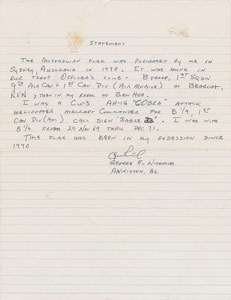 STATEMENT
THE AUSTRALIAN FLAG WAS PURCHASED BY ME IN
SYDNEY, AUSTRALIA IN 1970. IT WAS HUNG IN
OUR TROOP OFFICER'S CLUB - B TROOP, 1ST SQDN
9TH AIR CAV - 1ST CAV DIV (AIR MOBILE) AT BEARCAT,
RVN, THEN IN MY ROOM AT BEN HOA.
I WAS A CW3 AH-1G "COBRA" ATTACK
HELICOPTER AIRCRAFT COMMANDER FOR B/9, 1ST
CAV DIV (AM) CALL SIGN "SABRE
I WAS WITH
B/9 FROM 29 NOV 69 THRU DEC 71.
THIS FLAG HAS BEEN IN MY POSSESSION SINCE
1970
GEORGE E.
ANNISTON, AL